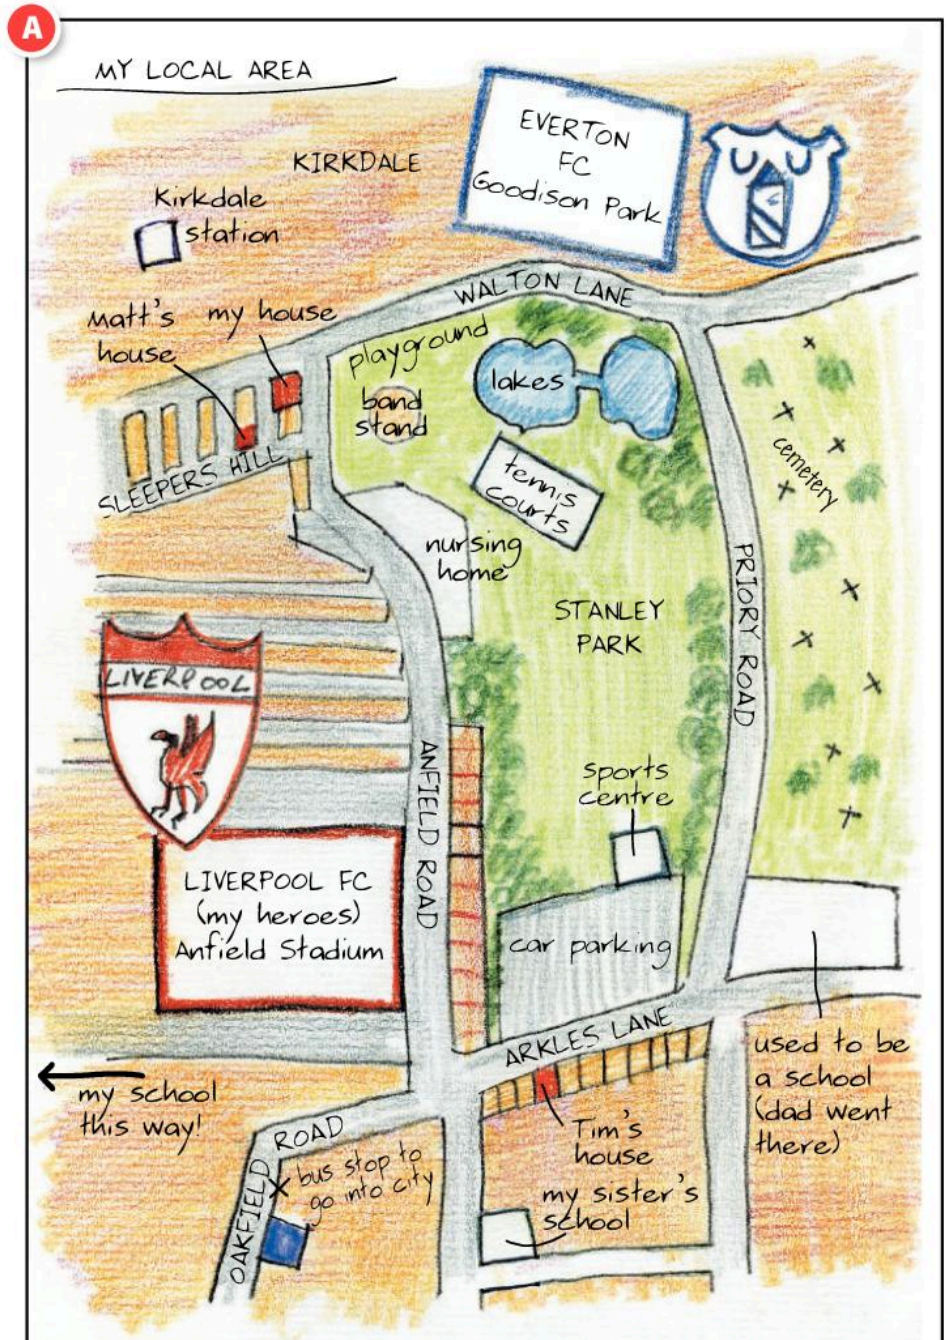 A
MY LOCAL AREA
EVERTON
FC
Goodison Park
KIRKDALE
Kirkdale
station
WALTON LANE
Matt's
house
my house
playground
band
stand
lakes
tennis
courts
cemetery
SLEEPERS HILL
nursing
home
STANLEY
PARK
PRIORY ROAD
LIVERPOOL
ANFIELD ROAD
sports
centre
LIVERPOOL FC
(my heroes)
Anfield Stadium
car parking
ARKLES LANE
used to be
a school
(dad went
there)
my school
this way!
OAKFIELD ROAD
bus stop to
go into city
Tim's
house
my sister's
school